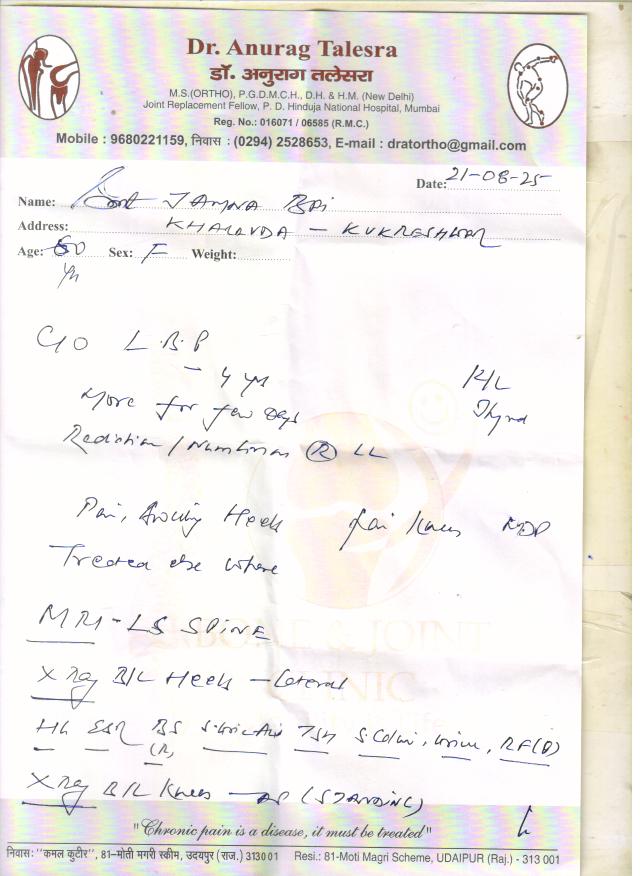 Dr. Anurag Talesra
डॉ. अनुराग तलेसरा
M.S.(ORTHO), P.G.D.M.C.H., D.H. & H.M. (New Delhi)
Joint Replacement Fellow, P. D. Hinduja National Hospital, Mumbai
Reg. No.: 016071 / 06585 (R.M.C.)
Mobile : 9680221159, निवास : (0294) 2528653, E-mail : dratortho@gmail.com
Date: 21-08-25
Name: JAMNA BAi
Address: KHALAVDA - KUKRESHWAR
Age: 60 Sex: F Weight:
yr
C/O L.B.P
- 4 yrs
K/C
More for few Days
Thyrd
Radiation / Numbness R LL
Pain, Heels Pain Knees
Treated else where
MRI - LS SPINE
X Ray B/L Heels - Lateral
Hb ESR BS S.Uric Acid TSH Urine, RF(Q)
(R)
X Ray B/L Knees - AP (STANDING)
BONE & JOINT
CLINIC
"Chronic pain is a disease, it must be treated"
निवास: "कमल कुटीर", 81-मोती मगरी स्कीम, उदयपुर (राज.) 313001 Resi.: 81-Moti Magri Scheme, UDAIPUR (Raj.) - 313 001